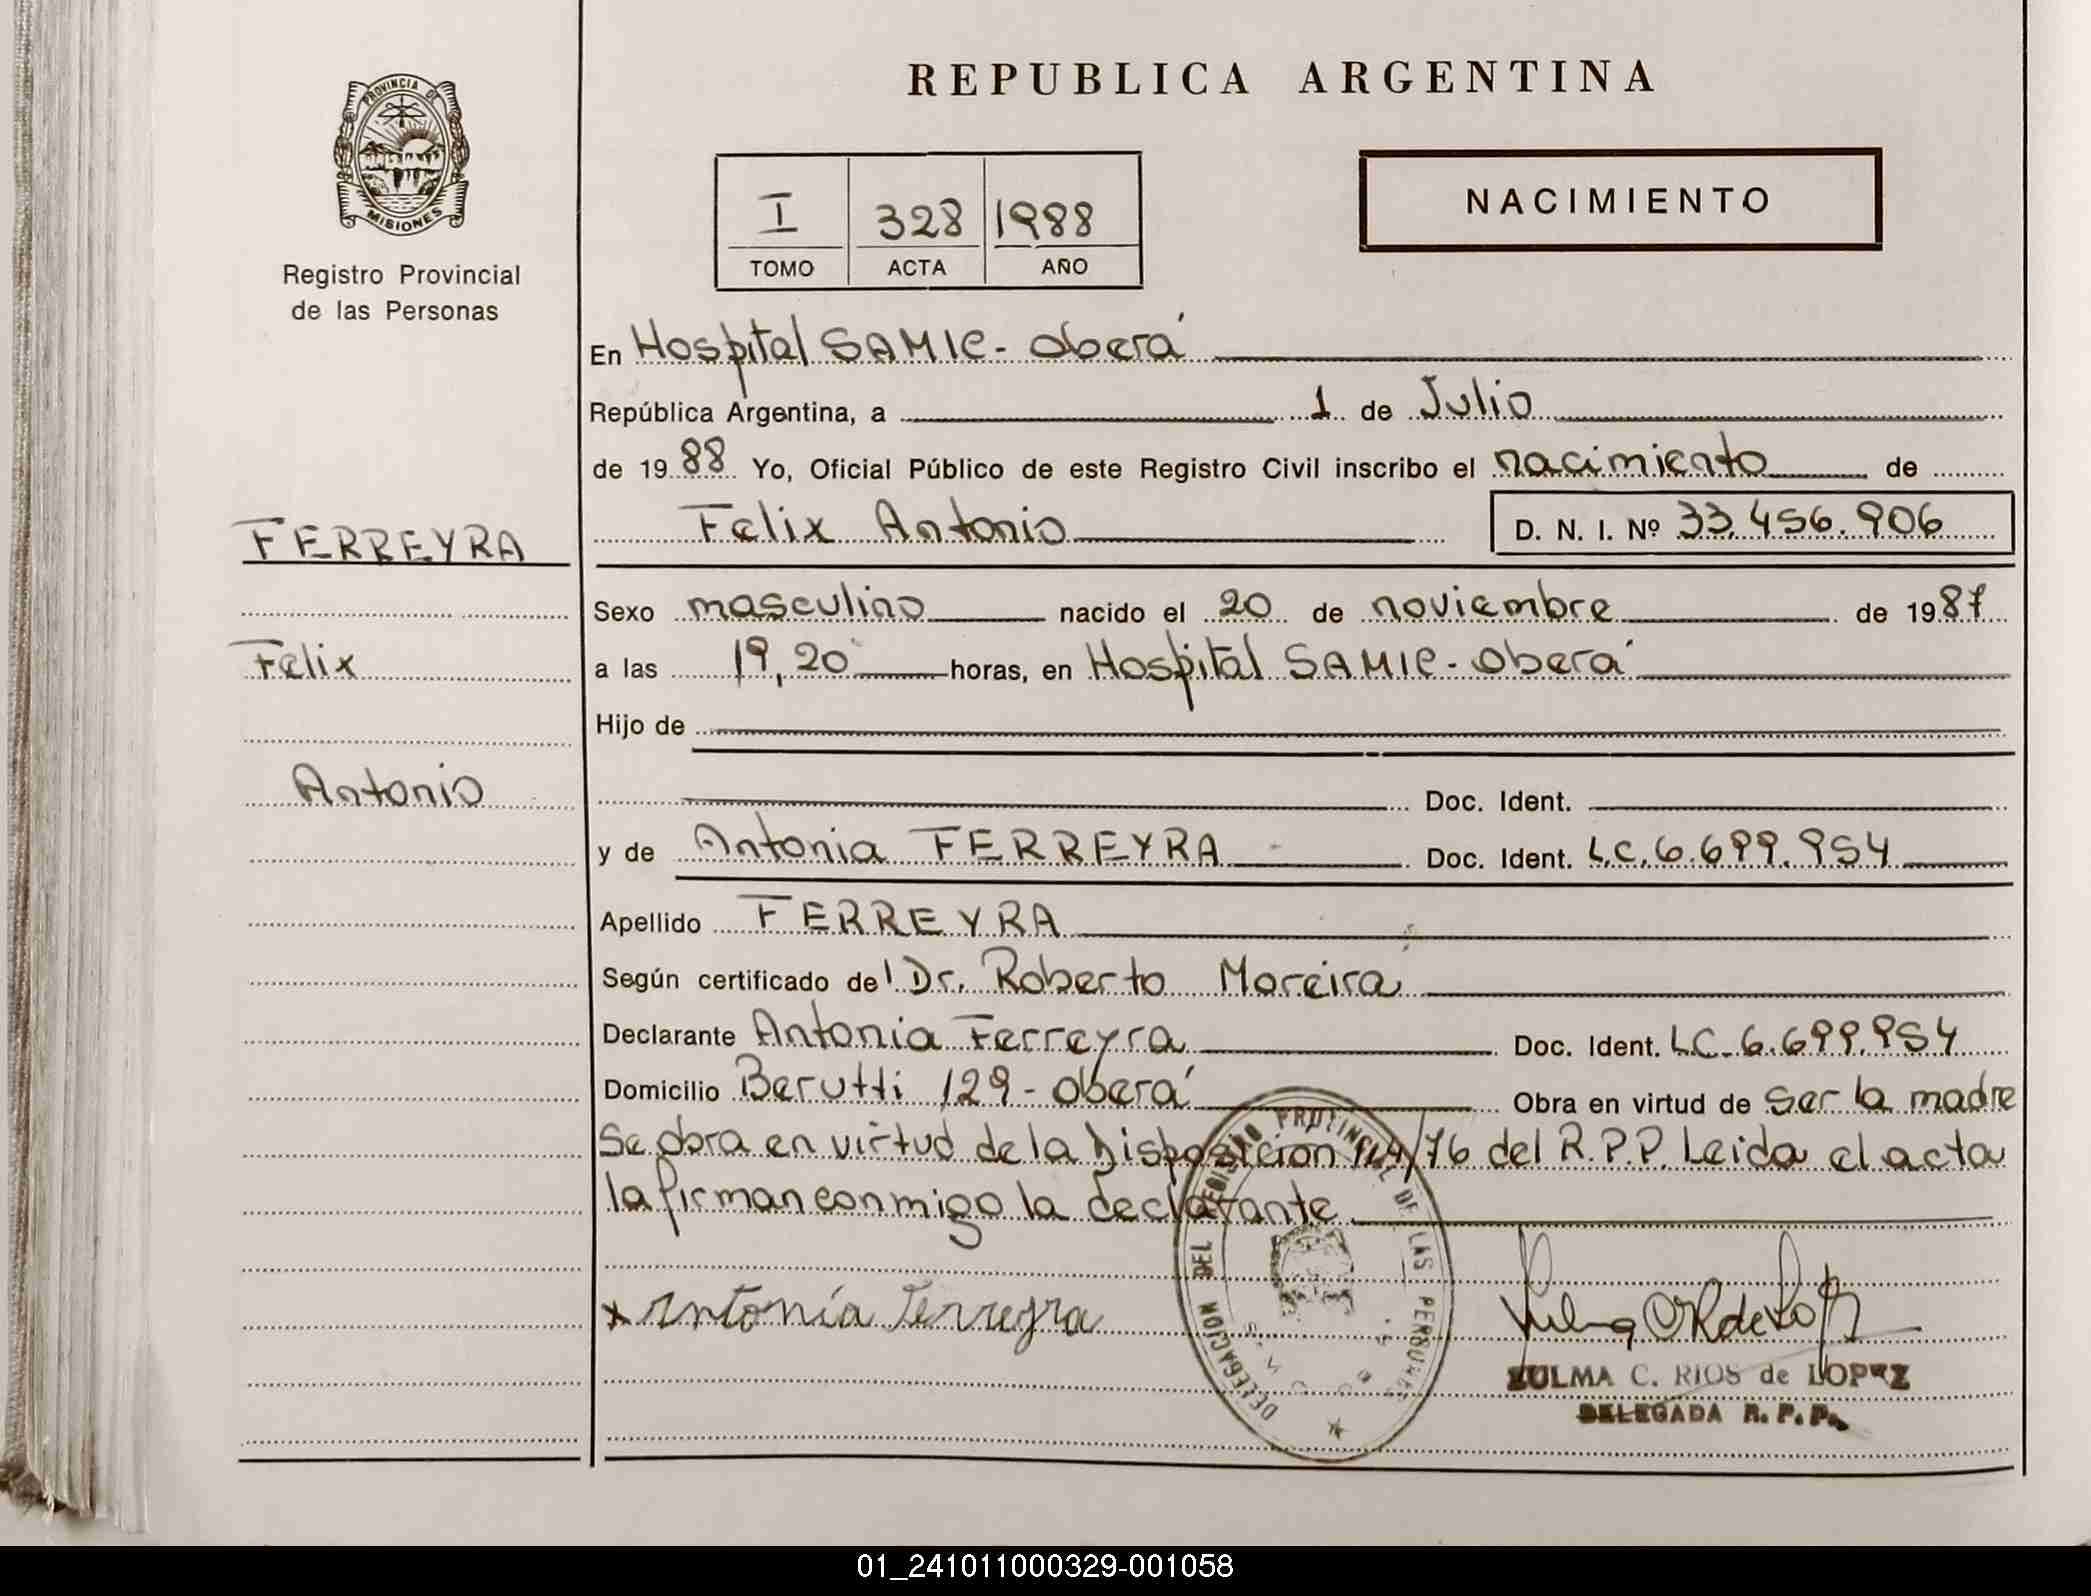 PROVINCIA DE
MISIONES
Registro Provincial
de las Personas
FERREYRA
Felix
Antonio
REPUBLICA ARGENTINA
I 328 1988
TOMO ACTA AÑO
NACIMIENTO
En Hospital SAMIC - Oberá
República Argentina, a 1 de Julio
de 1988 Yo, Oficial Público de este Registro Civil inscribo el nacimiento de
Felix Antonio D. N. I. Nº 33.456.906
Sexo masculino nacido el 20 de noviembre de 1987
a las 19,20 horas, en Hospital SAMIC - Oberá
Hijo de
Doc. Ident.
y de Antonia FERREYRA Doc. Ident. L.C. 6.699.954
Apellido FERREYRA
Según certificado del Dr. Roberto Moreira
Declarante Antonia Ferreyra Doc. Ident. LC. 6.699.954
Domicilio Berutti 129 - Oberá Obra en virtud de ser la madre
Se obra en virtud de la Disposicion /76 del R.P.P. Leida el acta
la firman conmigo la declarante
x Antonia Ferreyra
DELEGACION DEL REGISTRO PROVINCIAL DE LAS PERSONAS
ZULMA C. RIOS de LOPEZ
DELEGADA R. P. P.
01_241011000329-001058